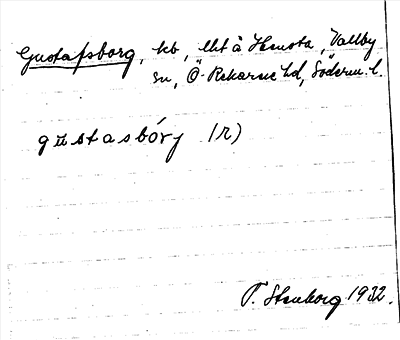 Gustafsborg, kb, lht å Hemsta, Vallby
sn, Ö-Rekarne hd, Söderm. l.
gustasbórj (R)
T. Stenborg 1932.